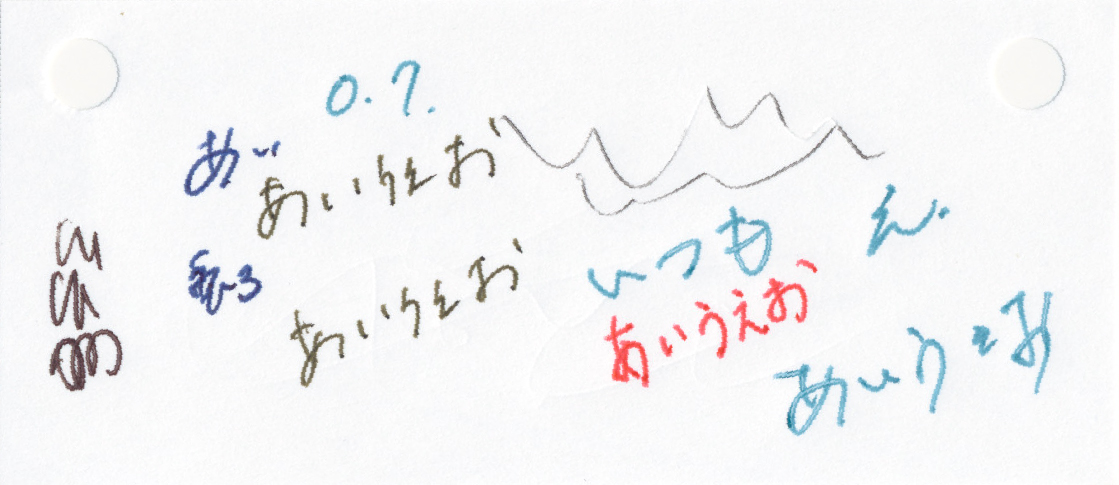 0.7.
あい
あいうえお
あいうえお
いつも
え.
あいうえお
あいうえお